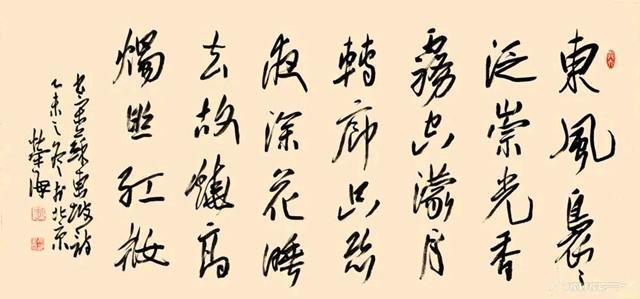 東風裊々
泛崇光香
霧空濛月
轉廊只恐
夜深花睡
去故燒高
燭照紅妝
蘇東坡詩
乙未之春於北京
海